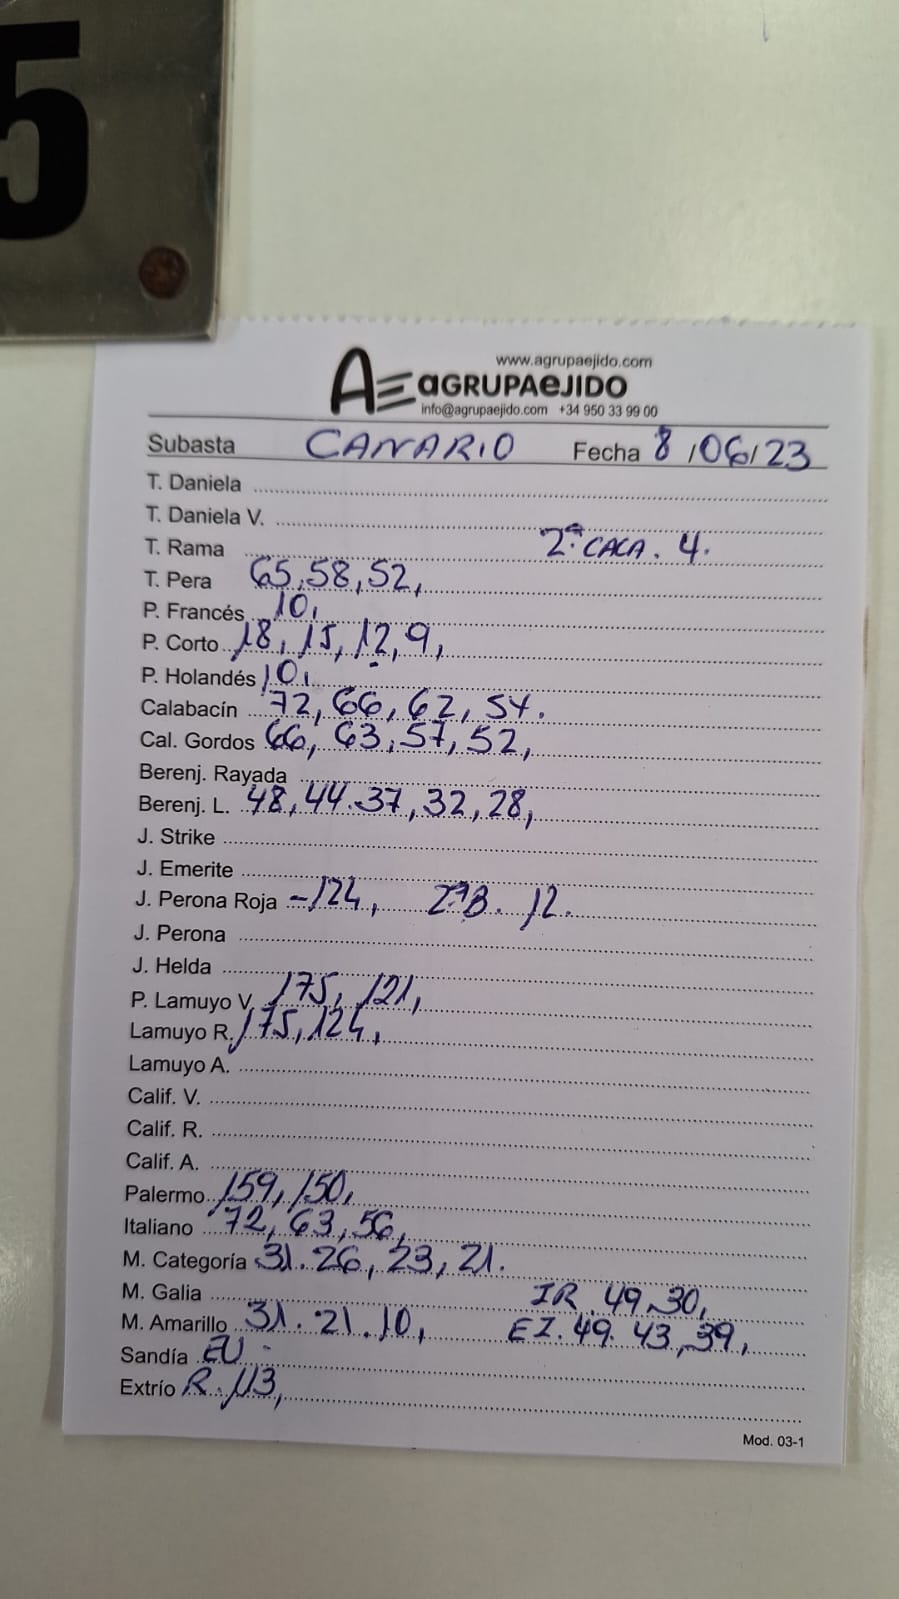 5
www.agrupaejido.com
AE aGRUPAeJIDO
info@agrupaejido.com +34 950 33 99 00
Subasta CANARIO Fecha 8/06/23
T. Daniela
T. Daniela V.
T. Rama 2ª CACA. 4.
T. Pera 65,58,52,
P. Francés 10,
P. Corto 18, 15, 12, 9,
P. Holandés 10,
Calabacín 72, 66, 62, 54.
Cal. Gordos 66, 63, 57, 52,
Berenj. Rayada
Berenj. L. 48, 44. 37, 32, 28,
J. Strike
J. Emerite
J. Perona Roja -124, 2ªB. 12.
J. Perona
J. Helda
P. Lamuyo V. 175, 121,
Lamuyo R. 175, 124,
Lamuyo A.
Calif. V.
Calif. R.
Calif. A.
Palermo 159, 150,
Italiano 72, 63, 56,
M. Categoría 31. 26, 23, 21.
M. Galia IR. 49, 30,
M. Amarillo 31. 21. 10, EZ. 49. 43, 39,
Sandía EU
Extrío R. 113,
Mod. 03-1